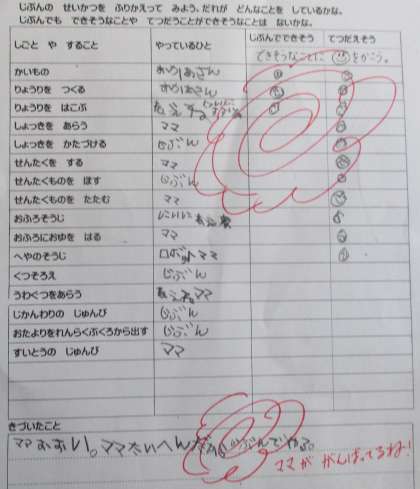 じぶんの せいかつを ふりかえって みよう。だれが どんなことを しているかな。
じぶんでも できそうなことや てつだうことができそうなことは ないかな。
しごと や すること やっているひと じぶんでできそう てつだえそう
できそうなことに ☺をかこう。
かいもの おかあさん
りょうりを つくる おかあさん
りょうりを はこぶ
しょっきを あらう ママ
しょっきを かたづける じぶん
せんたくを する ママ
せんたくものを ほす じぶん
せんたくものを たたむ ママ
おふろそうじ にいに
おふろにおゆを はる ママ
へやのそうじ じぶん ママ
くつそろえ じぶん
うわぐつをあらう ママ
じかんわりの じゅんび じぶん
おたよりをれんらくぶくろから出す じぶん
すいとうの じゅんび ママ
きづいたこと
ママおおい。ママたいへん じぶんでやる。
ママが がんばってるね!